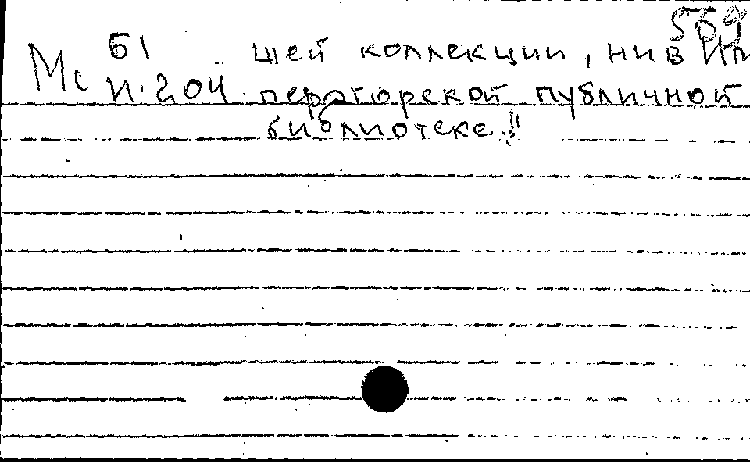 569
Мс Б1 шей коллекции, ни в Им
И.204 ператорской публичной
библиотеке!!